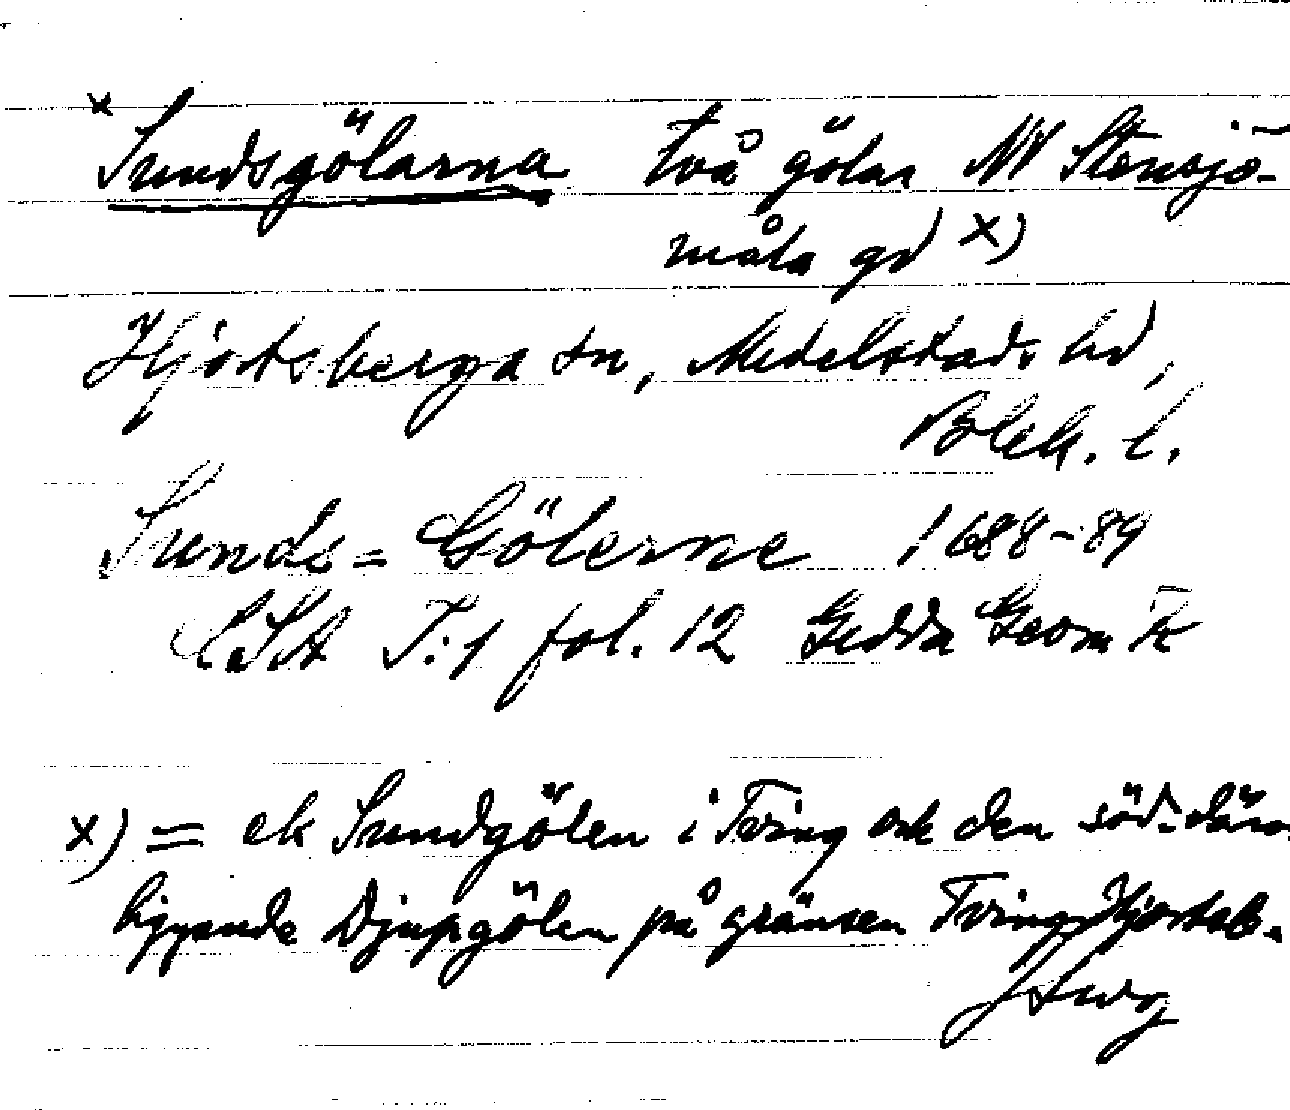 x Sundsgölarna två gölar NV Stensjö-
måla gd x)
Hjortsberga sn, Medelstads hd,
Blek. l.
Sunds= Gölerne 1688-89
LSA T:1 fol. 12 Gedda Geom K
x) = ek Sundgölen i Tving och den söd. där
liggande Djupgölen på gränsen Tving Hjortsb.